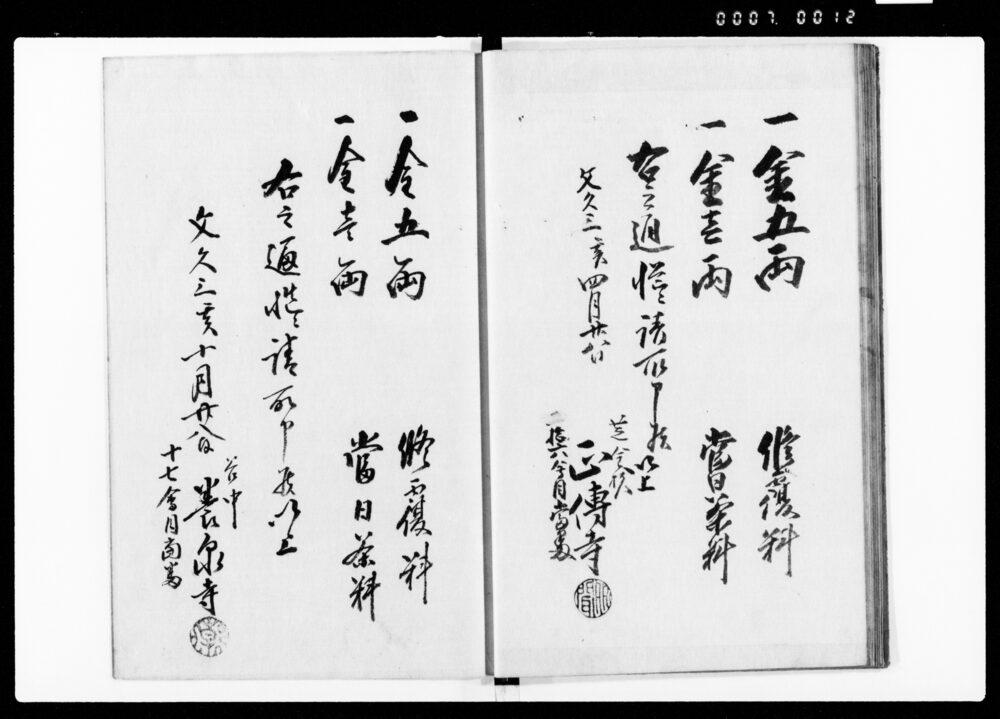 0007.0012
一金五両
修覆料
一金壱両
當日茶料
右之通慥ニ請取申候以上
文久三亥四月廿八日
芝金杉
正傳寺
二拾六会目當番
一金五両
修覆料
一金壱両
當日茶料
右之通慥ニ請取申候以上
文久三亥十月廿八日
谷中
養泉寺
十七會目